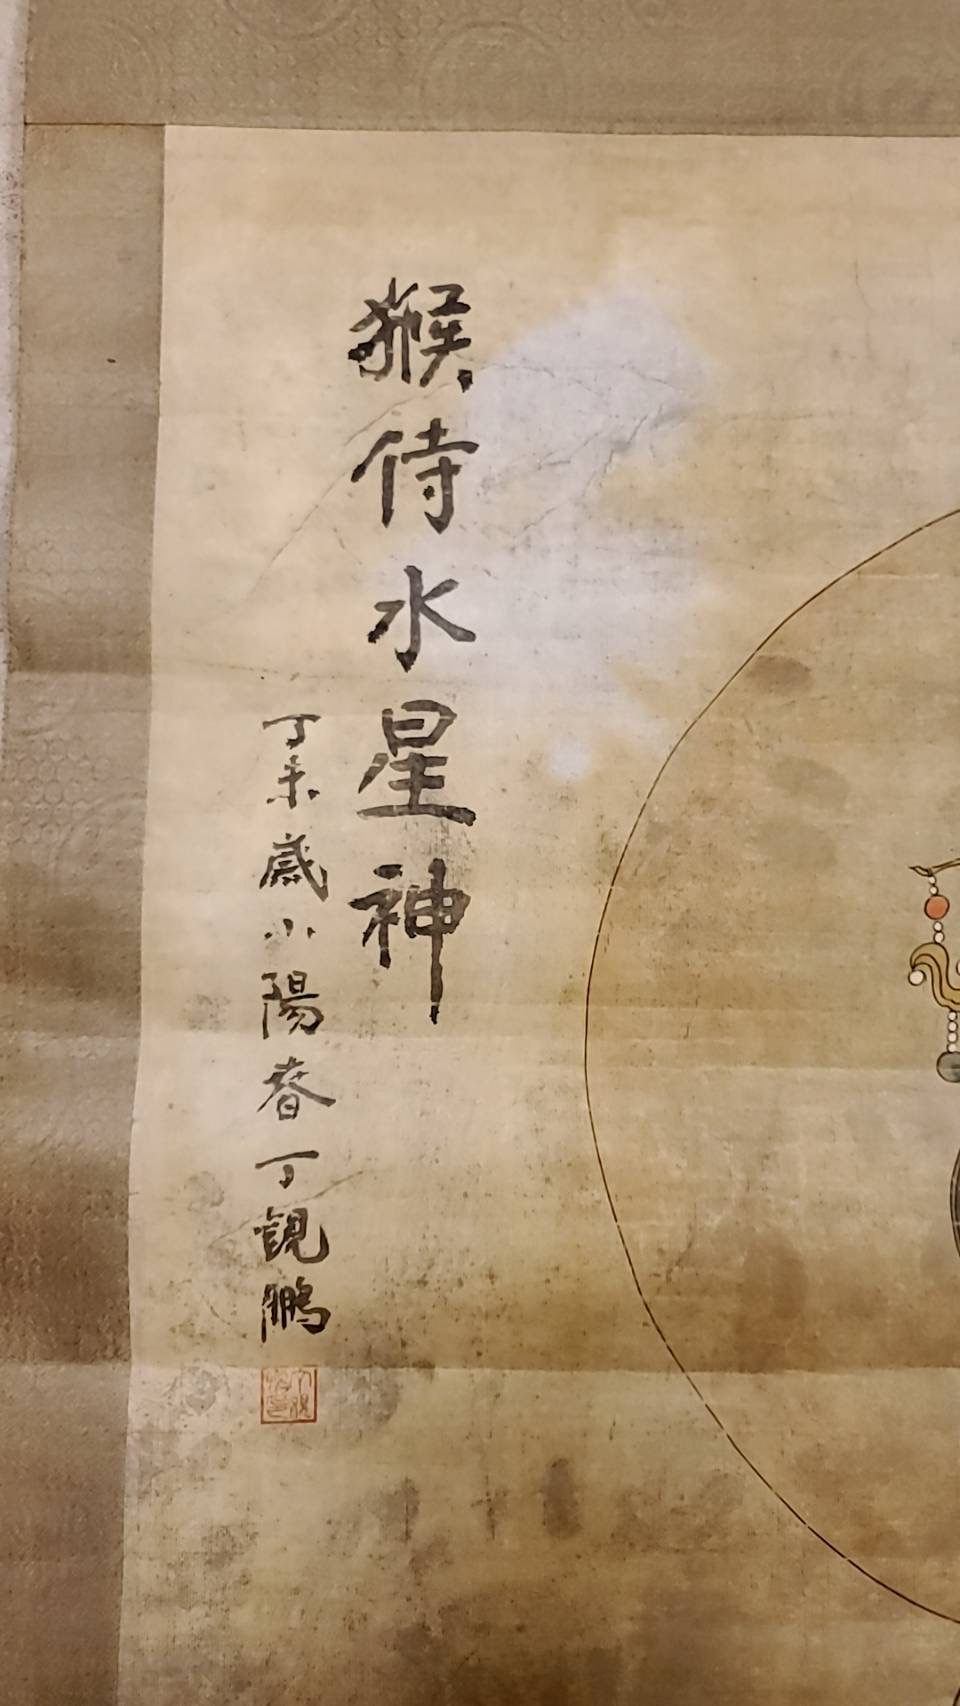 猴侍水星神
丁未歲小陽春丁觀鵬